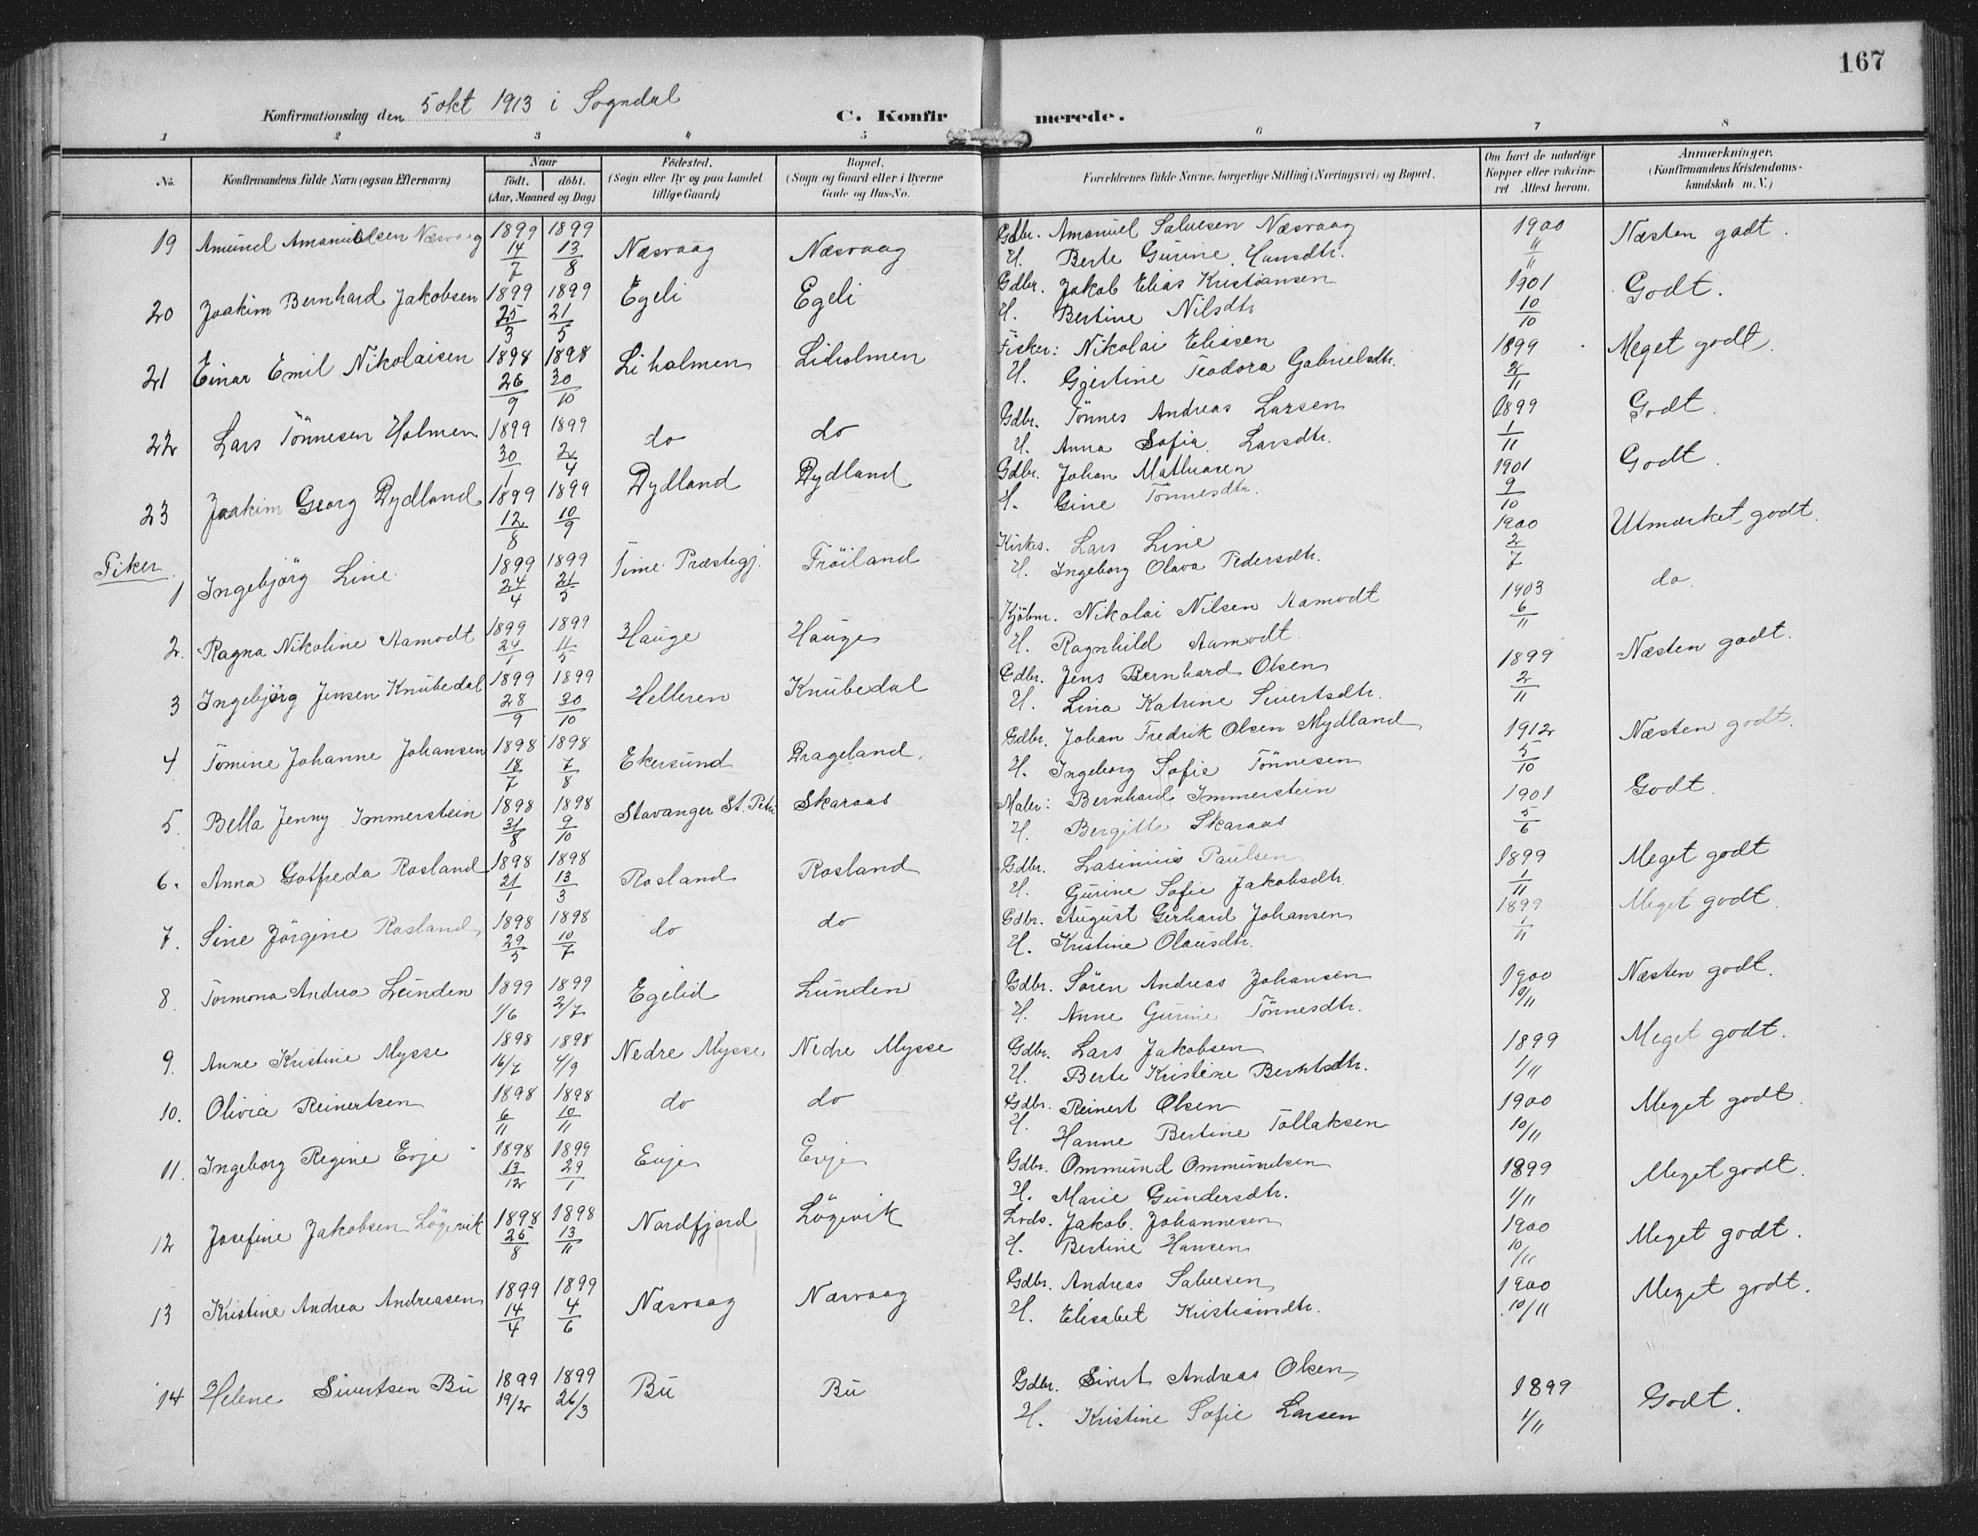 167
Konfirmationsdag den 5 okt 1913 i Sogndal
C. Konfirmerede.
1 2 3 4 5 6 7 8
No. Konfirmandens fulde Navn (ogsaa Efternavn) Naar født. døbt. (Aar, Maaned og Dag) Fødested. (Sogn eller By og paa Landet tillige Gaard) Bopæl. (Sogn og Gaard eller i Byerne Gade og Hus-No. Forældrenes fulde Navne, borgerlige Stilling (Næringsvei) og Bopæl. Om havt de naturlige Kopper eller vakcineret Attest herom. Anmærkninger. (Konfirmandens Kristendomskundskab m. V.)
19 Amund Amanuelsen Næsvaag 1899 14/7 1899 13/8 Næsvaag Næsvaag Gdbr. Amanuel Salvesen Næsvaag 1900 Næsten godt.
H. Berte Gurine Hansdtr.
20 Joakim Bernhard Jakobsen 1899 25/3 1899 21/5 Egeli Egeli Gdbr. Jakob Elias Kristiansen 1901 10/10 Godt.
H. Bertine Nilsdtr
21 Einar Emil Nikolaisen 1898 26/9 1898 30/10 Liholmen Liholmen Fisker: Nikolai Eliasen 1899 2/11 Meget godt.
H. Gjertine Teodora Gabrielsdtr.
22 Lars Tönnesen Holmen 1899 30/1 1899 2/4 do do Gdbr. Tönnes Andreas Larsen 1899 1/11 Godt.
H. Anna Sofie Larsdtr.
23 Joakim Georg Dydland 1899 12/8 1899 10/9 Dydland Dydland Gdbr. Johan Mathiasen 1901 9/10 Godt.
H. Gine Tönnesdtr.
Piker.
1 Ingebjörg Line 1899 24/4 1899 21/5 Time Præstegj. Fröiland Kirkes. Lars Line 1900 2/7 Utmærket godt.
H. Ingeborg Olava Pedersdtr.
2. Ragna Nikoline Aamodt 1899 24/1 1899 11/5 Hauge Hauge Kjöbm. Nikolai Nilsen Aamodt 1903 6/11 do.
H. Ragnhild Aamodt.
3 Ingebjörg Jensen Knubedal 1899 28/9 1899 30/10 Helleren Knubedal Gdbr. Jens Bernhard Olsen 1899 2/11 Næsten godt.
H. Lina Katrine Sivertsdtr.
4 Tomine Johanne Johansen 1898 18/7 1898 7/8 Ekersund Drageland. Gdbr. Johan Fredrik Olsen Mydland 1912 5/10 Næsten godt.
H. Ingeborg Sofie Tönnesen
5. Bella Jenny Immerstein 1898 31/8 1898 9/10 Stavanger St. Petri Skaraas Maler: Bernhard Immerstein 1901 5/6 Godt.
H. Bergitte Skaraas
6. Anna Gotfreda Rosland 1898 21/1 1898 13/3 Rosland Rosland Gdbr. Paulsen 1899 1/11 Meget godt
H. Gurine Sofie Jakobsdtr.
7. Sine Jörgine Rosland 1898 29/5 1898 10/7 do do Gdbr. August Gerhard Johansen 1899 1/11 Meget godt.
H. Kristine Olausdtr.
8. Tormona Andrea Lunden 1899 1/6 1899 2/7 Egelid Lunden Gdbr. Sören Andreas Johansen 1900 10/11 Næsten godt.
H. Anne Gurine Tönnesdtr.
9. Anne Kristine Mysse 1898 16/7 1898 4/9 Nedre Mysse Nedre Mysse Gdbr. Lars Jakobsen 1899 1/11 Meget godt.
H. Berte Kristine Berntsdtr.
10. Olivia Reinertsen 1898 6/11 1898 10/11 do do Gdbr. Reinert Olsen 1900 10/11 Meget godt.
H. Hanne Bertine Tollaksen
11. Ingeborg Regine Evje 1898 13/12 1899 29/1 Evje Evje Gdbr. Ommund Ommundsen 1899 1/11 Meget godt.
H. Marie Gundersdtr.
12 Josefine Jakobsen Lögevik 1898 25/8 1898 13/11 Nordfjord Lögevik Lods. Jakob Johannesen 1900 10/11 Meget godt.
H. Bertine Hansen
13 Kristine Andrea Andreasen 1899 14/4 1899 4/6 Næsvaag Næsvaag Gdbr. Andreas Salvesen 1900 10/11 Meget godt.
H. Elisabet Kristiansdtr.
14 Helene Sivertsen Bu 1899 19/2 1899 26/3 Bu Bu Gdbr. Sivert Andreas Olsen 1899 1/11 Godt.
H. Kristine Sofie Larsen